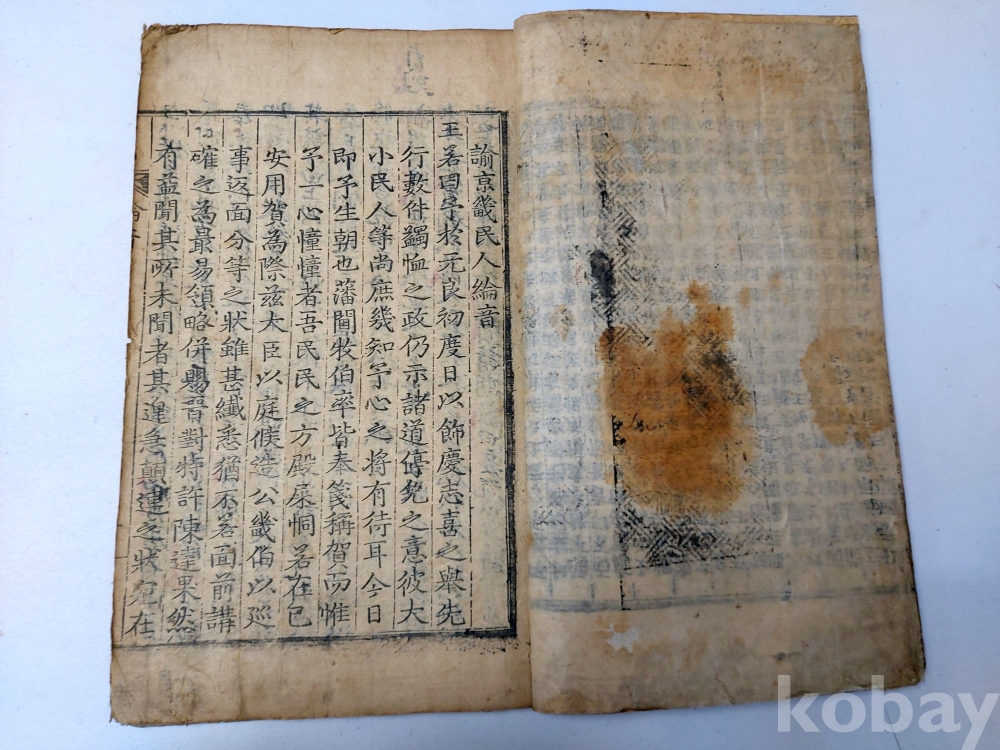 諭京畿民人綸音
王若曰予於元良初度日以飾慶志喜之擧先
行數件蠲恤之政仍示諸道停免之意彼大
小民人等尚庶幾知予心之將有待耳今日
即予生朝也藩閫牧伯率皆奉箋稱賀而惟
予一心憧憧者吾民民之方殿屎恫若在己
安用賀為際玆大臣以庭候造公畿伯以巡
事返面分等之狀雖甚纖悉猶不若面前講
確之為最易領略併賜晉對特許陳達果然
有益聞其所未聞者其遑急顛連之狀宛在
kobay